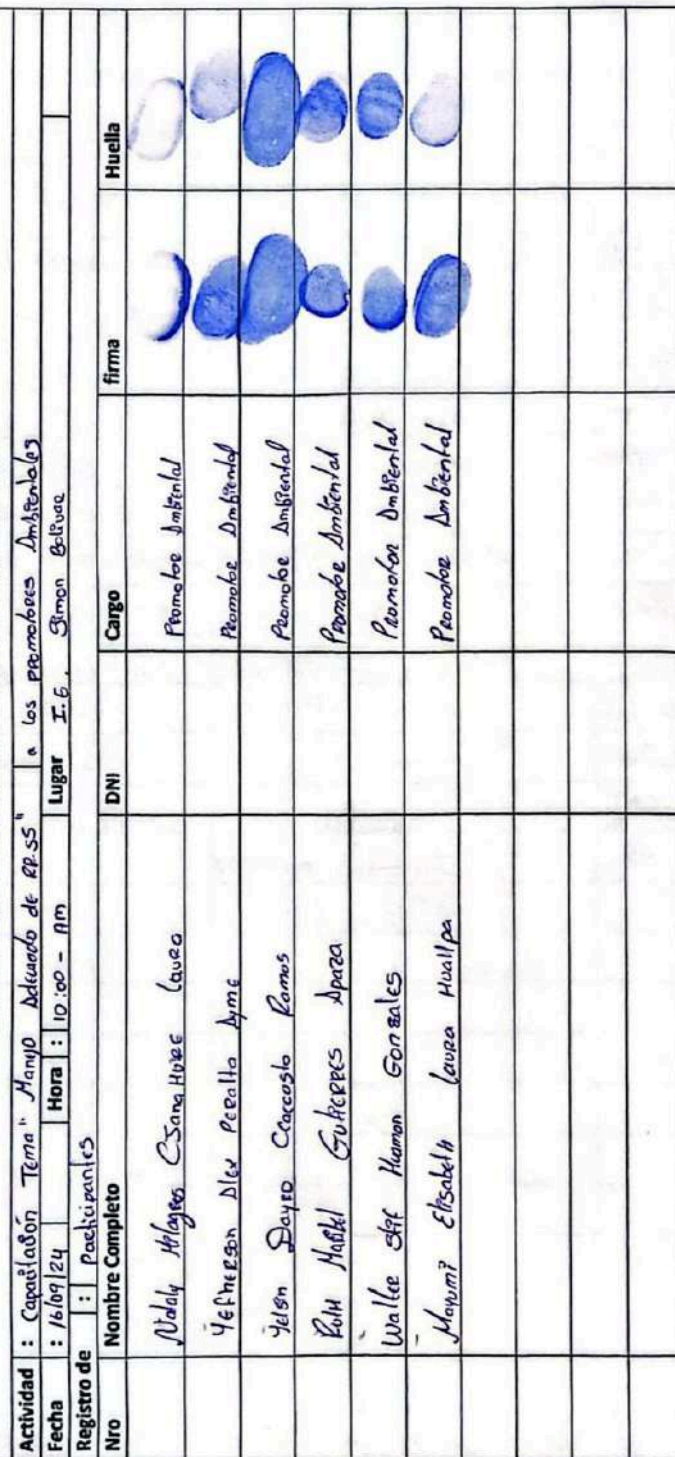 Actividad : Capacitación Tema " Manejo Adecuado de RR.SS" a los promotores Ambientales
Fecha : 16/09/24 Hora : 10:00 - AM Lugar I.E, Simon Bolivar
Registro de : Participantes
Nro Nombre Completo DNI Cargo firma Huella
Nataly Milagros Laura Promotor Ambiental
Yefherson Alex Peralta Ayme Promotor Ambiental
Yelsn Dayro Ccaccosto Ramos Promotor Ambiental
Ruth Maribel Gutierres Apaza Promotor Ambiental
Walter Huaman Gonzales Promotor Ambiental
Mayumi Elisabeth Laura Huallpa Promotor Ambiental